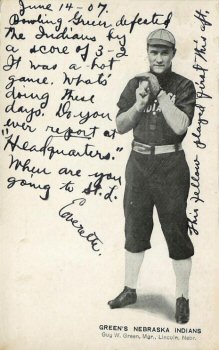 June 14-07.
Bowling Green defeated
the Indians by
a score of 3-2
It was a hot
game. Whats'
doing these
days. Do you
ever report at
"Headquarters."
When are you
going to St. L.
Everett.
This fellow played great this aft.
GREEN'S NEBRASKA INDIANS
Guy W. Green, Mgr., Lincoln, Nebr.